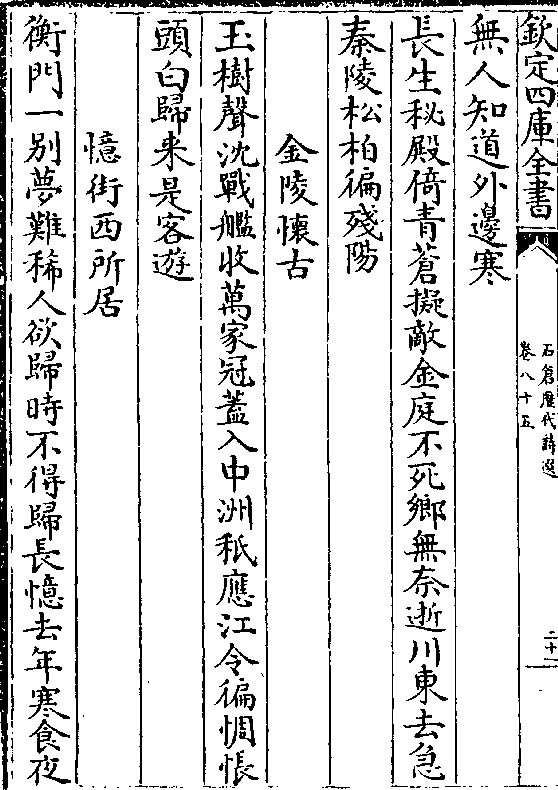 欽定四庫全書
石倉歷代詩選
卷八十五
二十一
無人知道外邊寒
長生秘殿倚青蒼擬敵金庭不死鄉無奈逝川東去急
秦陵松柏徧殘陽
金陵懷古
玉樹聲沈戰艦收萬家冠蓋入中洲秖應江令徧惆悵
頭白歸来是客遊
憶街西所居
衡門一别夢難稀人欲歸時不得歸長憶去年寒食夜